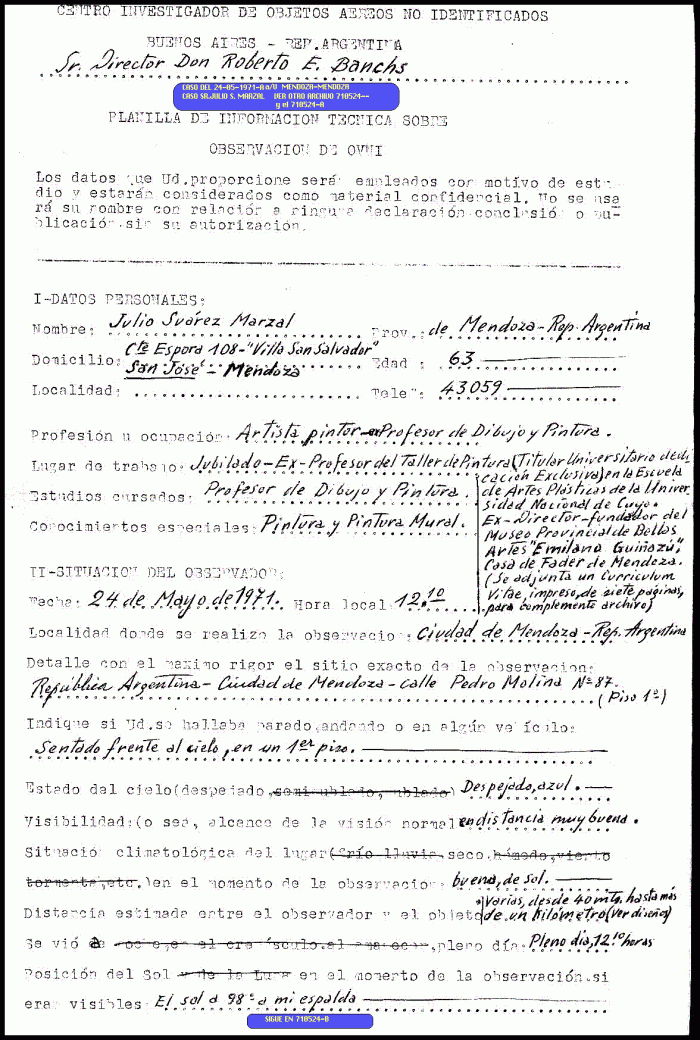 CENTRO INVESTIGADOR DE OBJETOS AEREOS NO IDENTIFICADOS
BUENOS AIRES - REP.ARGENTINA
Sr. Director Don Roberto E. Banchs
CASO DEL 24-05-1971-A a/U MENDOZA-MENDOZA
CASO SR.JULIO S. MARZAL VER OTRO ARCHIVO 710524--
y el 710524-A
PLANILLA DE INFORMACION TECNICA SOBRE
OBSERVACION DE OVNI
Los datos que Ud.proporcione será: empleados cor motivo de estu-
dio y estarán considerados como material confidercial. No se usa
rá su rombre con relación a ringura declaración conclusión o pu-
blicación sin su autorización.
I-DATOS PERSONALES:
Nombre: Julio Suárez Marzal Prov.: de Mendoza-Rep. Argentina
Domicilio: Cte Espora 108-"Villa San Salvador" Edad : 63
San José - Mendoza
Localidad: Tele": 43059
Profesión u ocupación: Artista pintor-ex Profesor de Dibujo y Pintura.
Lugar de trabajo: Jubilado-Ex-Profesor del Taller de Pintura (Titular Universitario dedi
cación Exclusiva) en la Escuela
Estudios cursados: Profesor de Dibujo y Pintura. de Artes Plásticas de la Univer
sidad Nacional de Cuyo.
Corocimientos especiales: Pintura y Pintura Mural. Ex-Director-fundador del
Museo Provincial de Bellas
Artes "Emiliano Guiñazú",
Casa de Fader de Mendoza.
II-SITUACION DEL OBSERVADOR: (Se adjunta un Curriculum
Vitae, impreso, de siete páginas,
Fecha: 24 de Mayo de 1971. Hora local: 12.10 para complemento archivo)
Localidad donde se realizo la observacion: Ciudad de Mendoza-Rep. Argentina
Detalle con el maximo rigor el sitio exacto de la observacion:
República Argentina-Ciudad de Mendoza-calle Pedro Molina Nº 87.
(Piso 1º)
Indique si Ud.se hallaba parado,andando o en algún vehículo:
Sentado frente al cielo, en un 1er piso.
Estado del cielo(despejado,semi-nublado, nublado) Despejado, azul.
Visibilidad:(o sea, alcance de la visión normal en distancia muy buena.
Situación climatológica del lugar(frío lluvia,seco,húmedo,viento
tormenta,etc.)en el momento de la observacion: buena, de sol.
varias, desde 40 mts. hasta más
Distancia estimada entre el observador y el objeto de un kilómetro (ver diseños)
Se vió de noche,en el crepúsculo,al amanecer,pleno día: Pleno día, 12.10 horas
Posición del Sol y de la Luna en el momento de la observación.si
eran visibles: El sol a 98° a mi espalda
SIGUE EN 710524-B